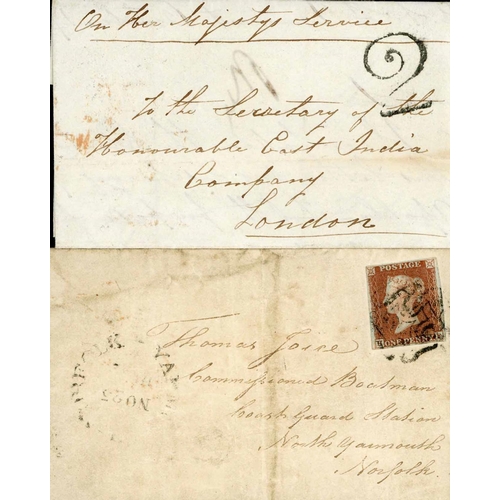 On Her Majestys Service
2
To the Secretary of the
Honourable East India
Company
London
POSTAGE
ONE PENNY
Thomas
Commissioned Boatman
Coast Guard Station
North Yarmouth
Norfolk
NO 23